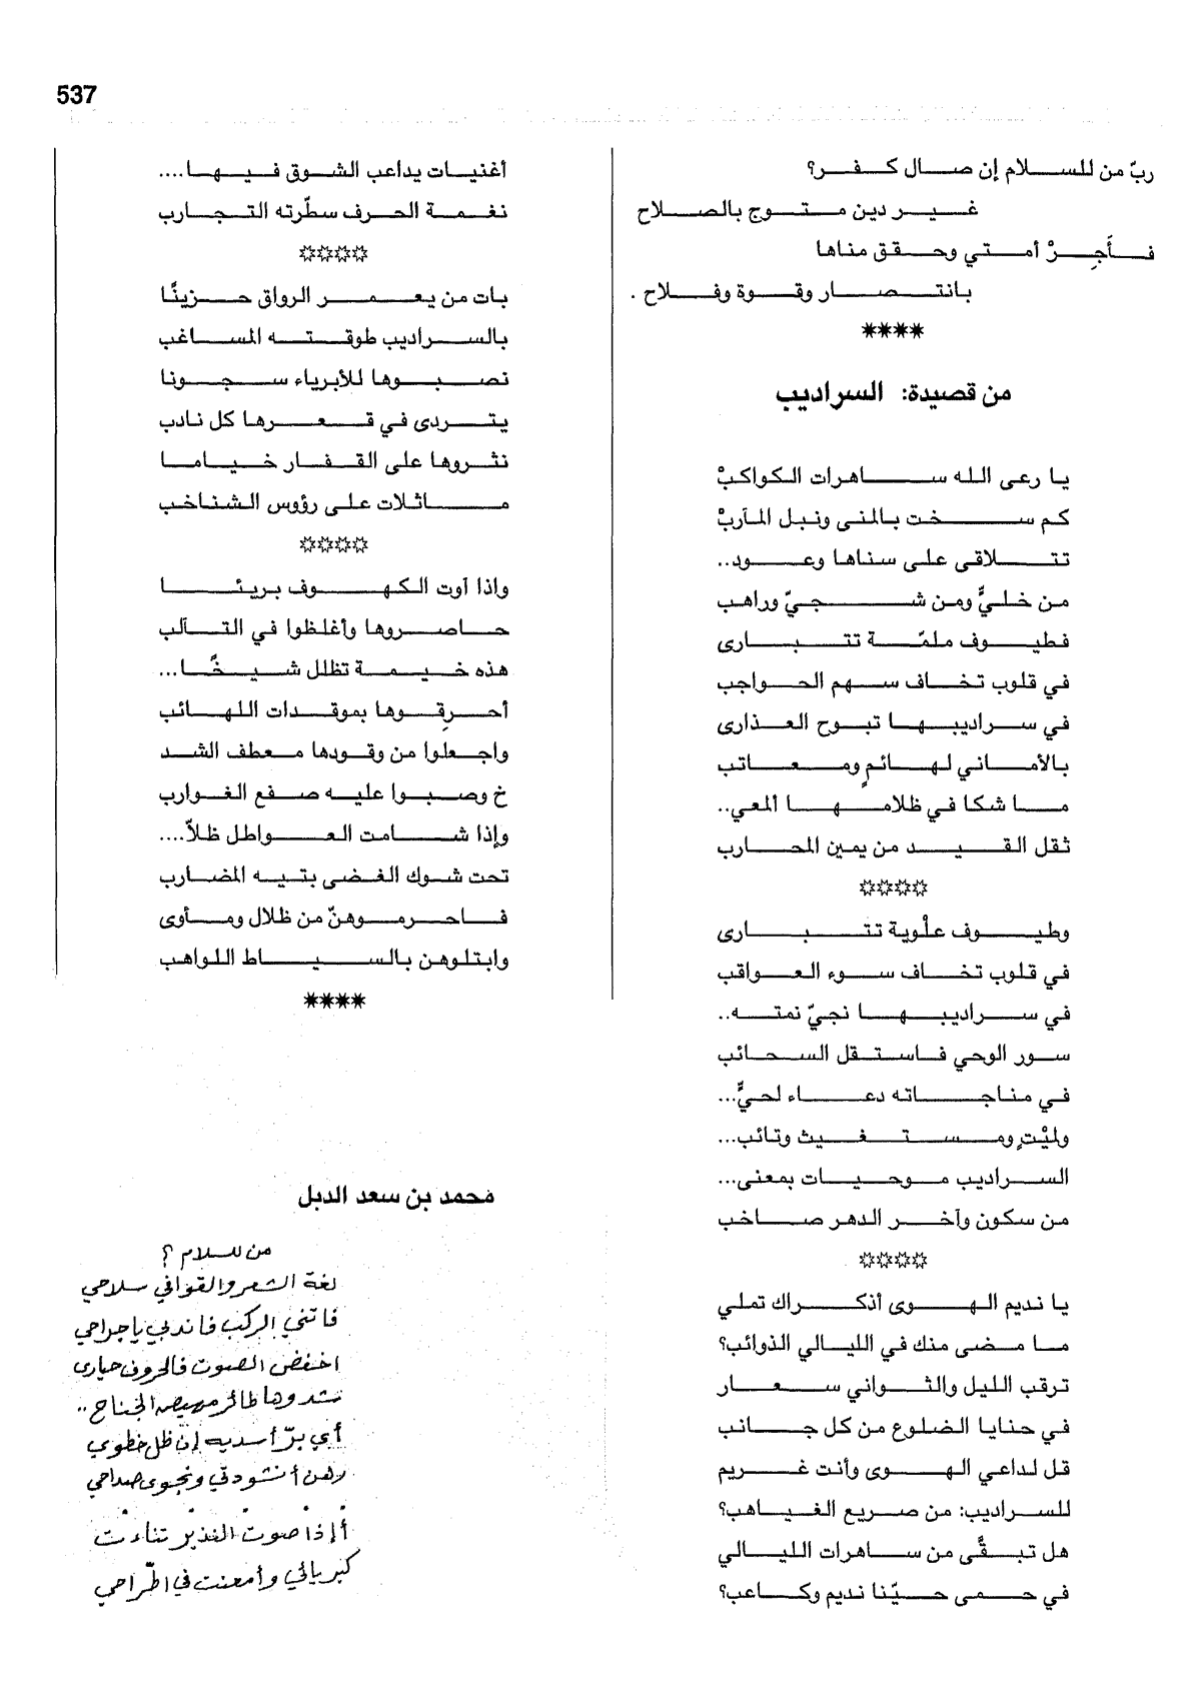 537
ربّ من للسلام إن صال كفر؟
غير دين متوج بالصلاح
فأَجِرْ أمتي وحقق مناها
بانتصار وقوة وفلاح .
****
من قصيدة: السراديب
يا رعى الله ساهرات الكواكبْ
كم سخت بالمنى ونبل المآربْ
تتلاقى على سناها وعود..
من خليٍّ ومن شجيّ وراهب
فطيوف ملمّة تتبارى
في قلوب تخاف سهم الحواجب
في سراديبها تبوح العذارى
بالأماني لهائمٍ ومعاتب
ما شكا في ظلامها ألمعي..
ثقل القيد من يمين المحارب
****
وطيوف علْوية تتبارى
في قلوب تخاف سوء العواقب
في سراديبها نجيّ نمته..
سور الوحي فاستقل السحائب
في مناجاته دعاء لحيٍّ...
ولميْتٍ ومستغيث وتائب...
السراديب موحيات بمعنى...
من سكون وآخر الدهر صاخب
****
يا نديم الهوى أذكراك تملي
ما مضى منك في الليالي الذوائب؟
ترقب الليل والثواني سعار
في حنايا الضلوع من كل جانب
قل لداعي الهوى وأنت غريم
للسراديب: من صريع الغياهب؟
هل تبقَّى من ساهرات الليالي
في حمى حيّنا نديم وكاعب؟
أغنيات يداعب الشوق فيها....
نغمة الحرف سطّرته التجارب
****
بات من يعمر الرواق حزينًا
بالسراديب طوقته المساغب
نصبوها للأبرياء سجونا
يتردى في قعرها كل نادب
نثروها على القفار خياما
ماثلات على رؤوس الشناخب
****
وإذا آوت الكهوف بريئا
حاصروها وأغلظوا في التآلب
هذه خيمة تظلل شيخًا...
أحرِقوها بموقدات اللهائب
واجعلوا من وقودها معطف الشد
خ وصبوا عليه صفع الغوارب
وإذا شامت العواطل ظلاّ....
تحت شوك الغضى بتيه المضارب
فاحرموهنّ من ظلال ومأوى
وابتلوهن بالسياط اللواهب
****
محمد بن سعد الدبل
من للسلام ؟
لغة الشعر والقوافي سلاحي
فاتني الركب فاندبي ياجراحي
اخفض الصوت فالحروف حيارى
شدوها طائر مهيض الجناح ..
أي برّ أسديه إن ظل خطوي
رهن أنشودتي ونجوى صداحي
أإذا صوت النذير تناءت
كبريائي وأمعنت في اطّراحي